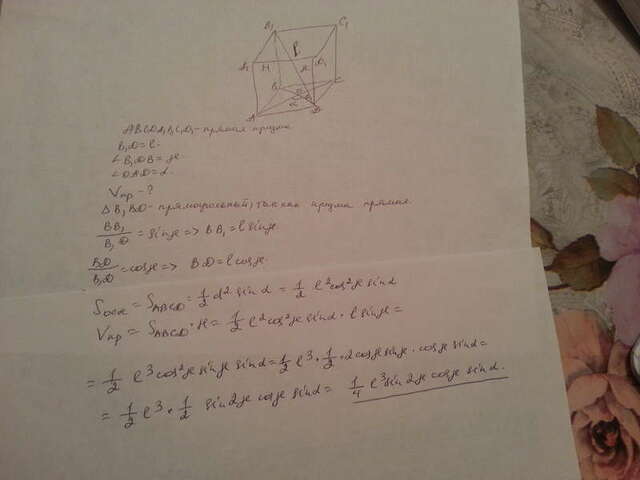 B₁ C₁
A₁ H D₁
B C
A D
ABCDA₁B₁C₁D₁ - прямая призма
B₁D = l.
∠B₁DB = φ.
∠OAD = α.
Vпр - ?
△B₁BD - прямоугольный, так как призма прямая.
BB₁/B₁D = sinφ => BB₁ = l sinφ
BD/B₁D = cosφ => BD = l cosφ.
Sосн = SABCD = 1/2 d² sinα = 1/2 l² cos²φ sinα
Vпр = SABCD · H = 1/2 l² cos²φ sinα · l sinφ =
= 1/2 l³ cos²φ sinφ sinα = 1/2 l³ · 1/2 · 2cosφ sinφ · cosφ sinα =
= 1/2 l³ · 1/2 sin2φ cosφ sinα = 1/4 l³ sin2φ cosφ sinα.